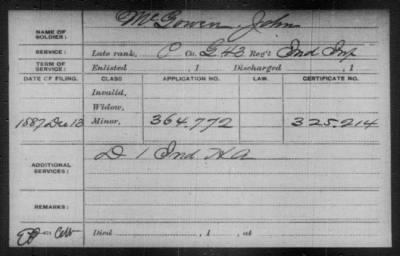 NAME OF SOLDIER: McGowen, John
SERVICE: Late rank, P Co. G 43 Reg't Ind Inf
TERM OF SERVICE: Enlisted , 1 Discharged , 1
DATE OF FILING. CLASS APPLICATION NO. LAW. CERTIFICATE NO.
Invalid,
Widow,
1887 Dec 13 Minor, 364.772 325.214
ADDITIONAL SERVICES: D 1 Ind H A
REMARKS:
Died , 1 , at